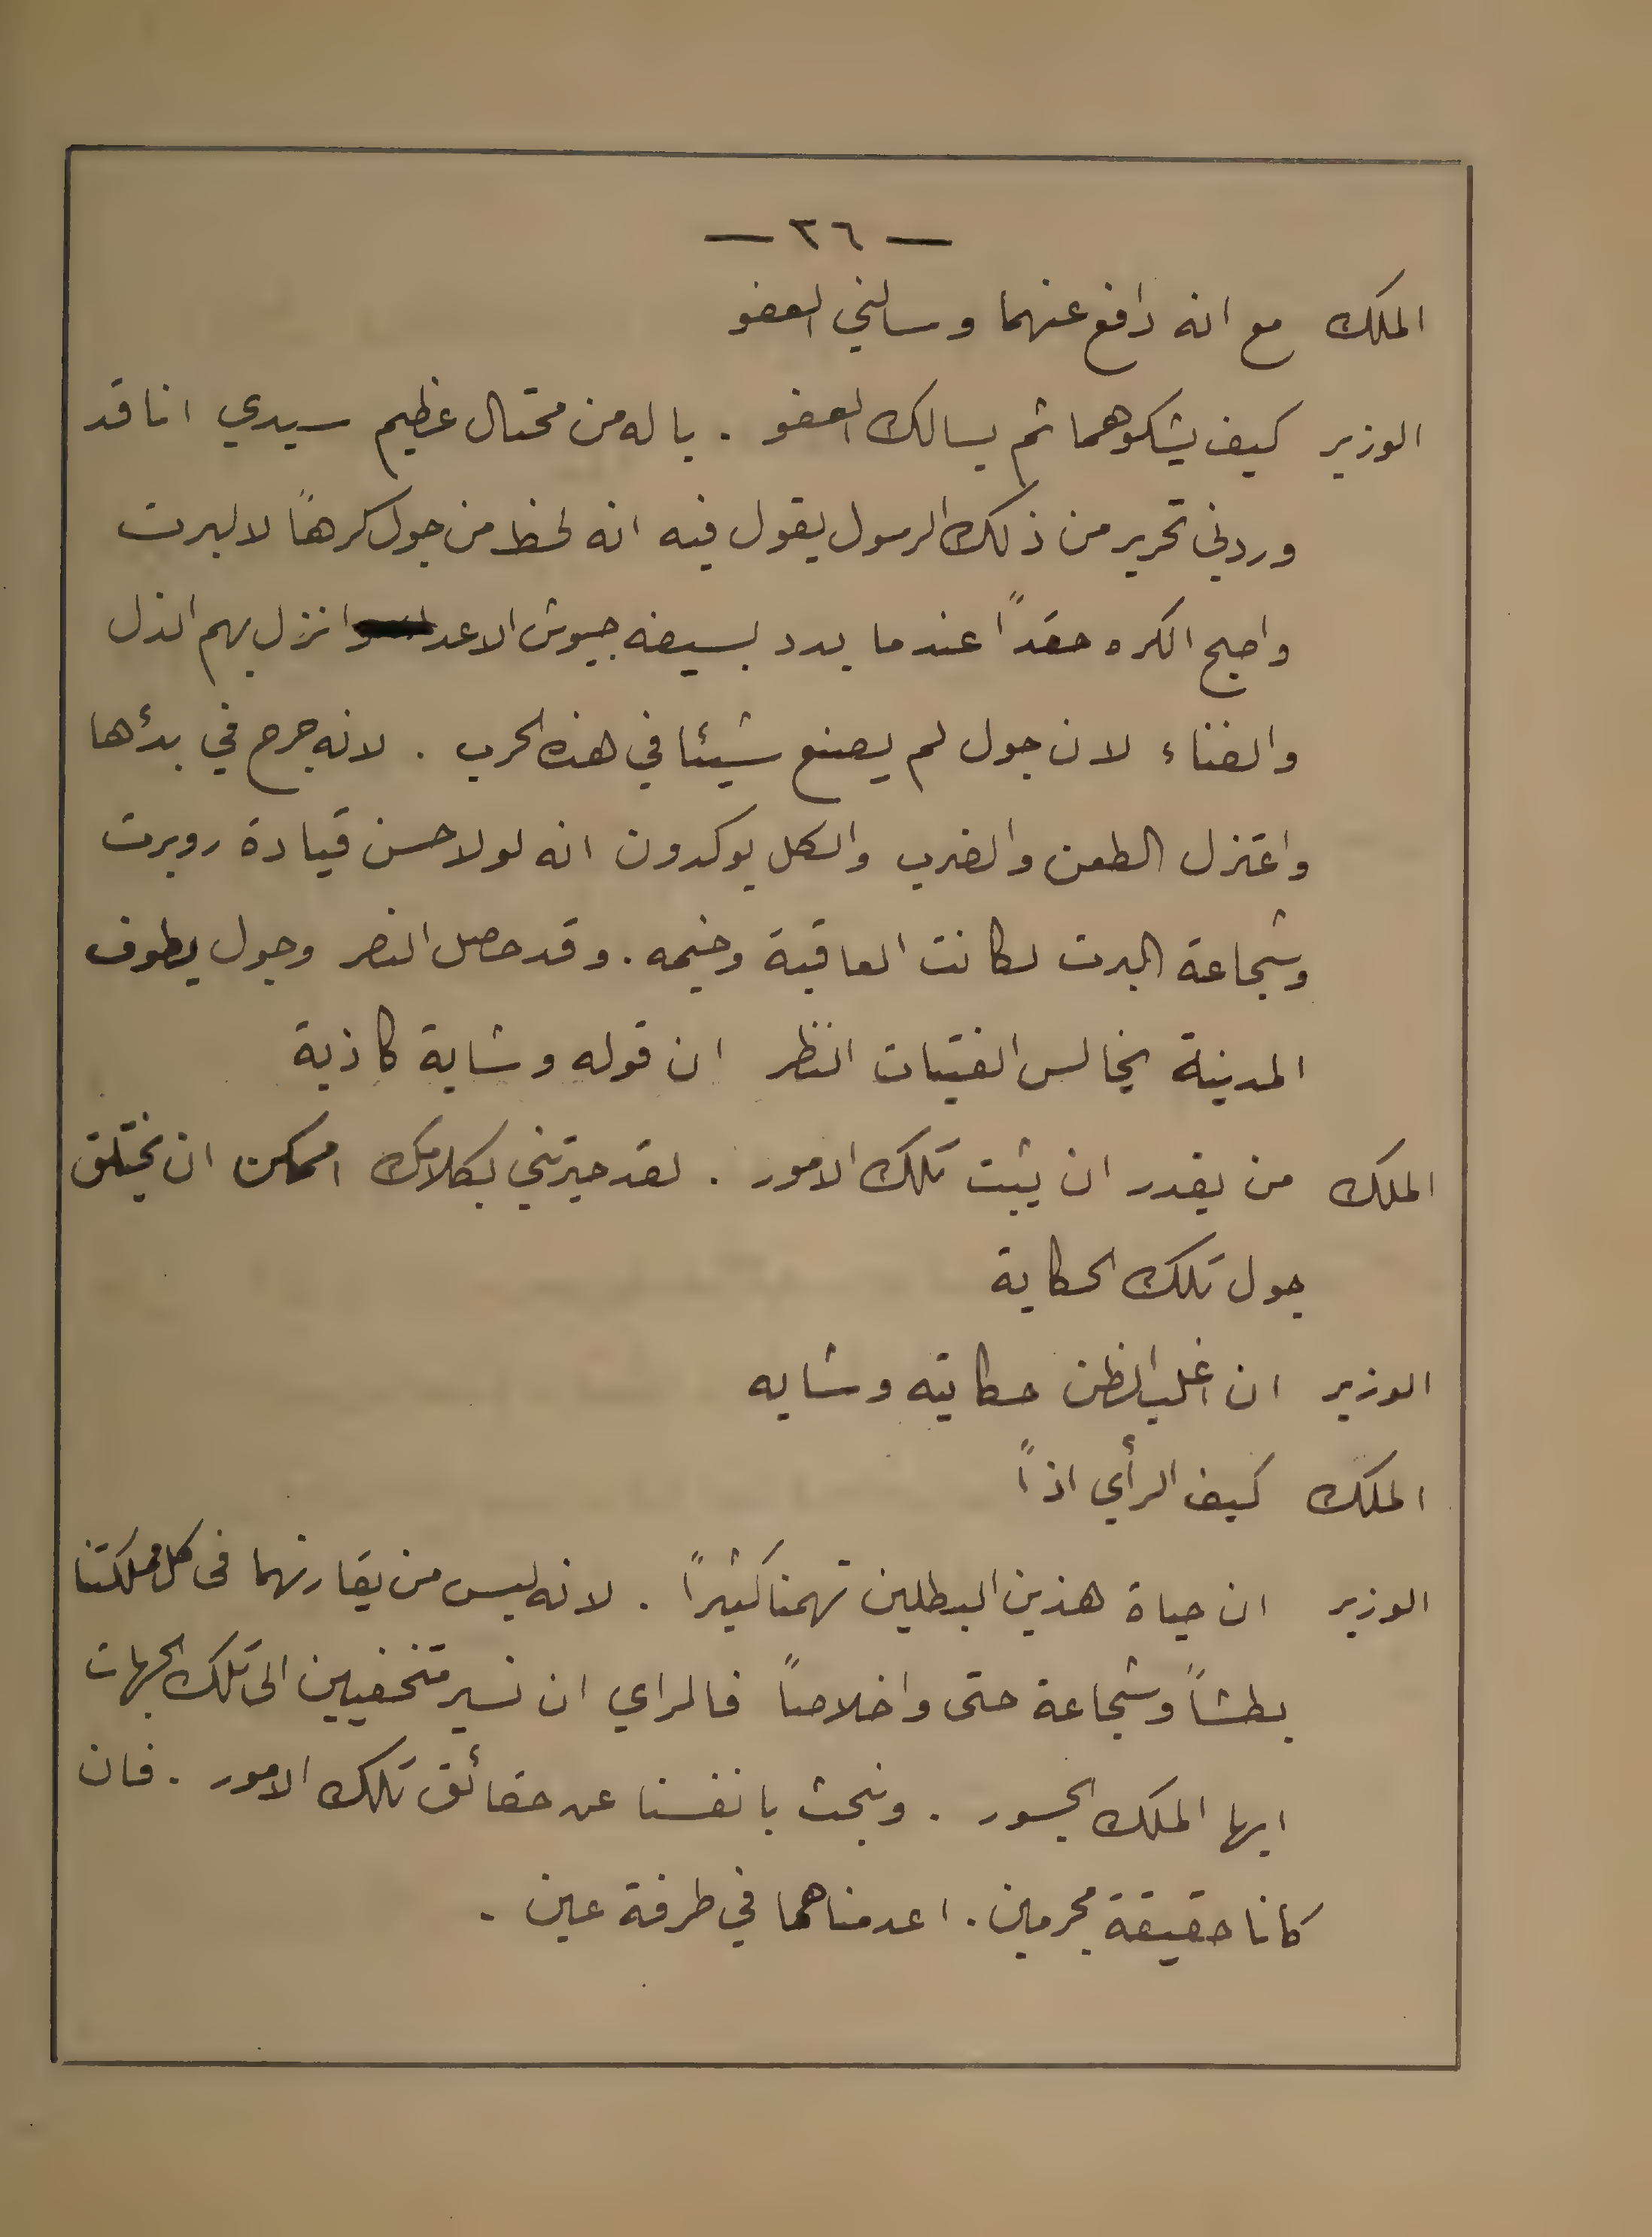 — ٢٦ —
الملك مع انه دافع عنهما وسالني العفو
الوزير كيف يشكوهما ثم يسالك العفو . يا له من محتال عظيم سيدي انا قد
وردني تحرير من ذلك الرسول يقول فيه انه لحظ من جول كرهاً لالبرت
واصبح الكره حقداً عندما بدد بسيفه جيوش الاعدا وانزل بهم الذل
والفناء لان جول لم يصنع شيئا في هذه الحرب . لانه جرح في بدأها
واعتزل الطعن والضرب والكل يوكدون انه لولا حسن قيادة روبرت
وشجاعة البرت لكانت العاقبة وخيمه . وقد حصل النصر وجول يطوف
المدينة يخالس الفتيات النظر ان قوله وشاية كاذبة
الملك من يقدر ان يثبت تلك الامور . لقد حيرتني بكلامك اممكن ان يختلق
جول تلك الحكاية
الوزير ان اغلب الظن حكايته وشايه
الملك كيف الرأي اذاً
الوزير ان حياة هذين البطلين تهمنا كثيراً . لانه ليس من يقارنهما في كل مملكتنا
بطشاً وشجاعة حتى واخلاصاً فالراي ان نسير متخفيين الى تلك الجهات
ايها الملك الجسور . ونبحث بانفسنا عن حقائق تلك الامور . فان
كانا حقيقة مجرمين . اعدمناهما في طرفة عين .